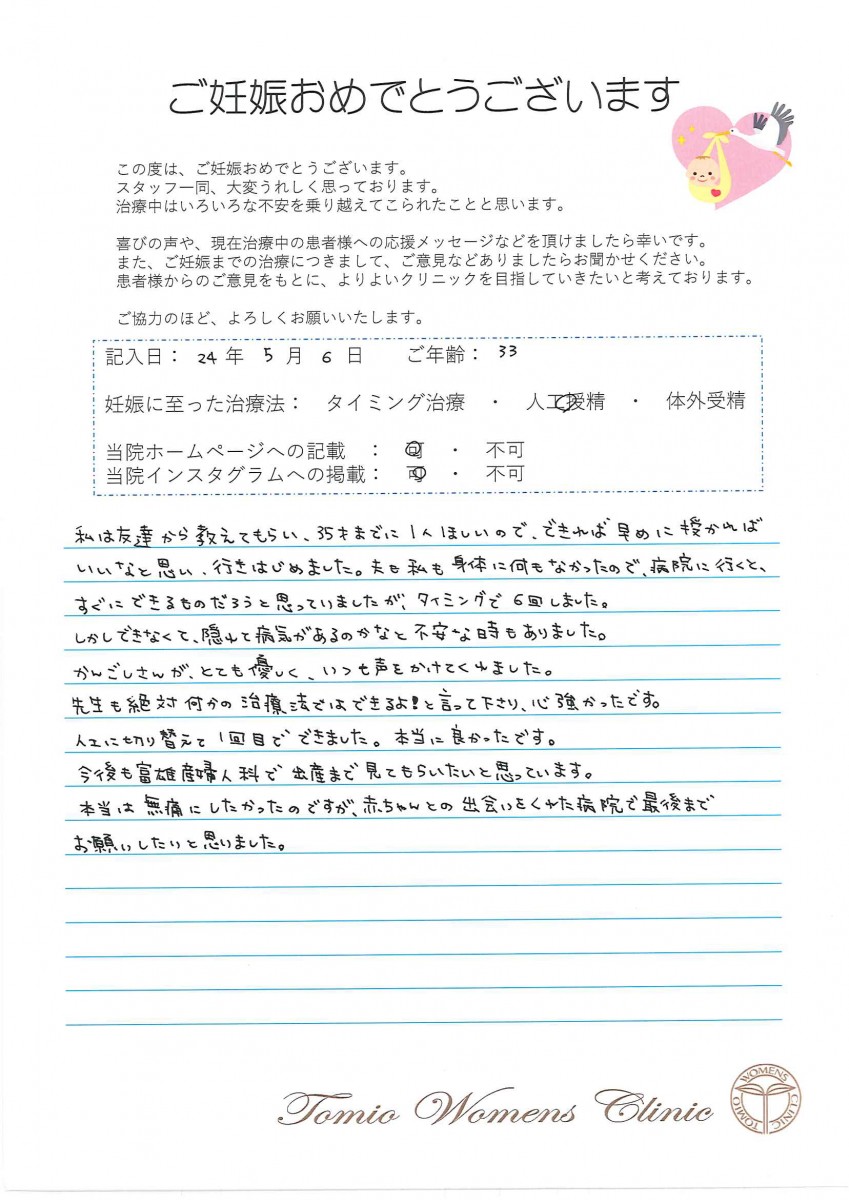 ご妊娠おめでとうございます
この度は、ご妊娠おめでとうございます。
スタッフ一同、大変うれしく思っております。
治療中はいろいろな不安を乗り越えてこられたことと思います。
喜びの声や、現在治療中の患者様への応援メッセージなどを頂けましたら幸いです。
また、ご妊娠までの治療につきまして、ご意見などありましたらお聞かせください。
患者様からのご意見をもとに、よりよいクリニックを目指していきたいと考えております。
ご協力のほど、よろしくお願いいたします。
記入日： 24 年 5 月 6 日 ご年齢： 33
妊娠に至った治療法： タイミング治療 ・ 人工授精 ・ 体外受精
当院ホームページへの記載 ： 可 ・ 不可
当院インスタグラムへの掲載： 可 ・ 不可
私は友達から教えてもらい、35才までに1人ほしいので、できれば早めに授かれば
いいなと思い、行きはじめました。夫も私も身体に何もなかったので、病院に行くと、
すぐにできるものだろうと思っていましたが、タイミングで6回しました。
しかしできなくて、隠れて病気があるのかなと不安な時もありました。
かんごしさんが、とても優しく、いつも声をかけてくれました。
先生も絶対何かの治療法ではできるよ!と言って下さり、心強かったです。
人工に切り替えて1回目でできました。本当に良かったです。
今後も富雄産婦人科で出産まで見てもらいたいと思っています。
本当は無痛にしたかったのですが、赤ちゃんとの出会いをくれた病院で最後まで
お願いしたいと思いました。
Tomio Womens Clinic
TOMIO WOMENS CLINIC